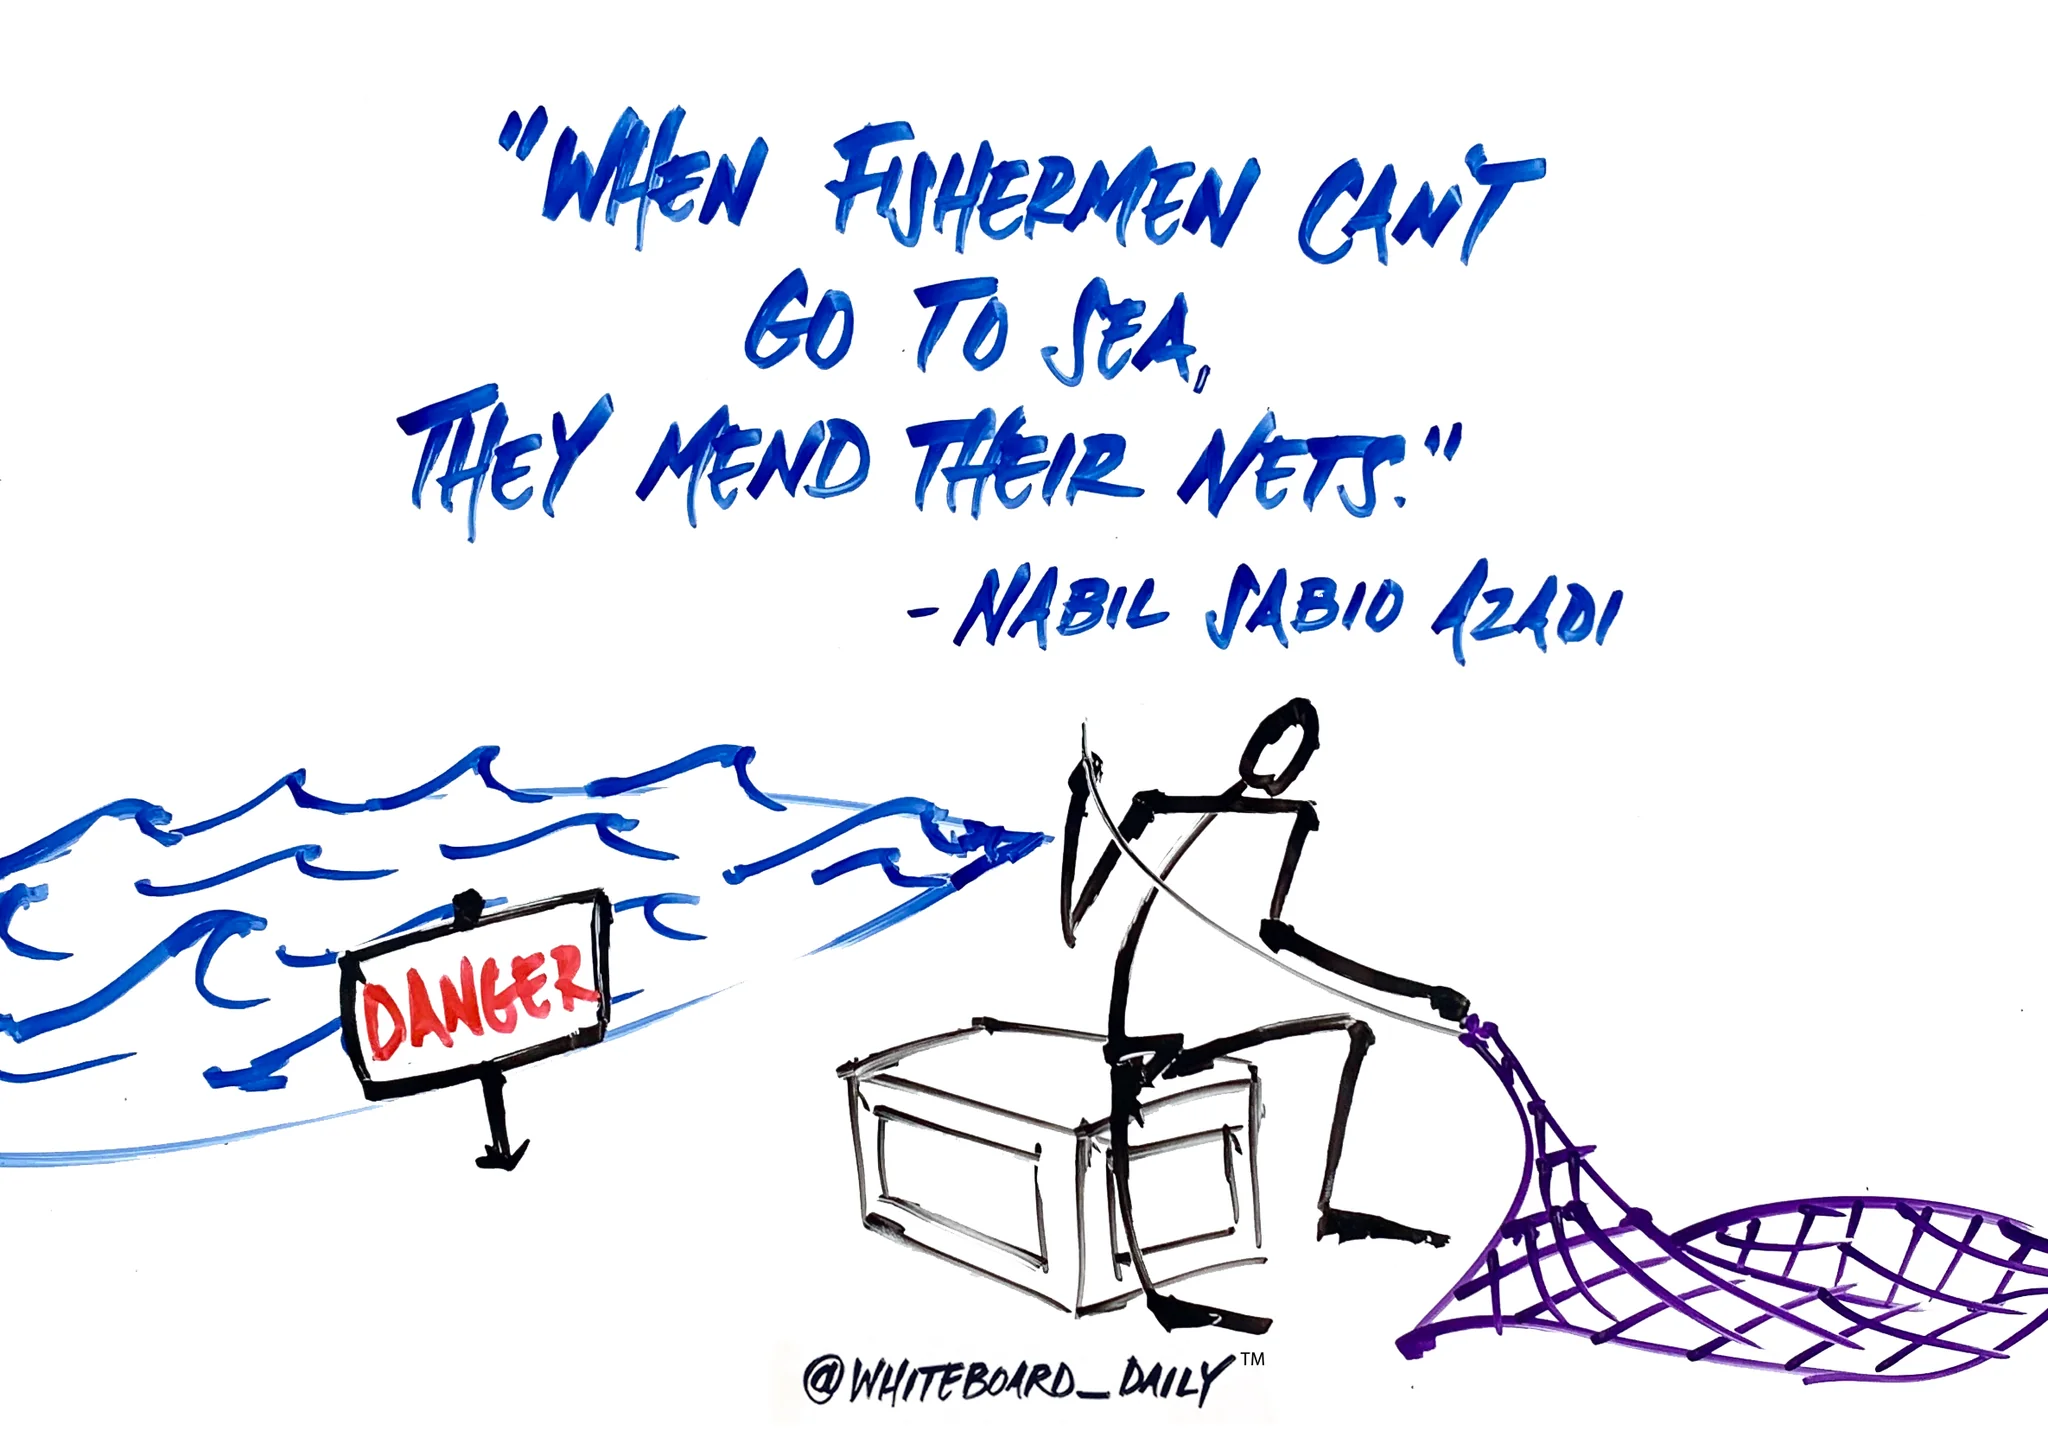 "WHEN FISHERMEN CAN'T
GO TO SEA,
THEY MEND THEIR NETS."
- NABIL SABIO AZADI
DANGER
@WHITEBOARD_DAILY™